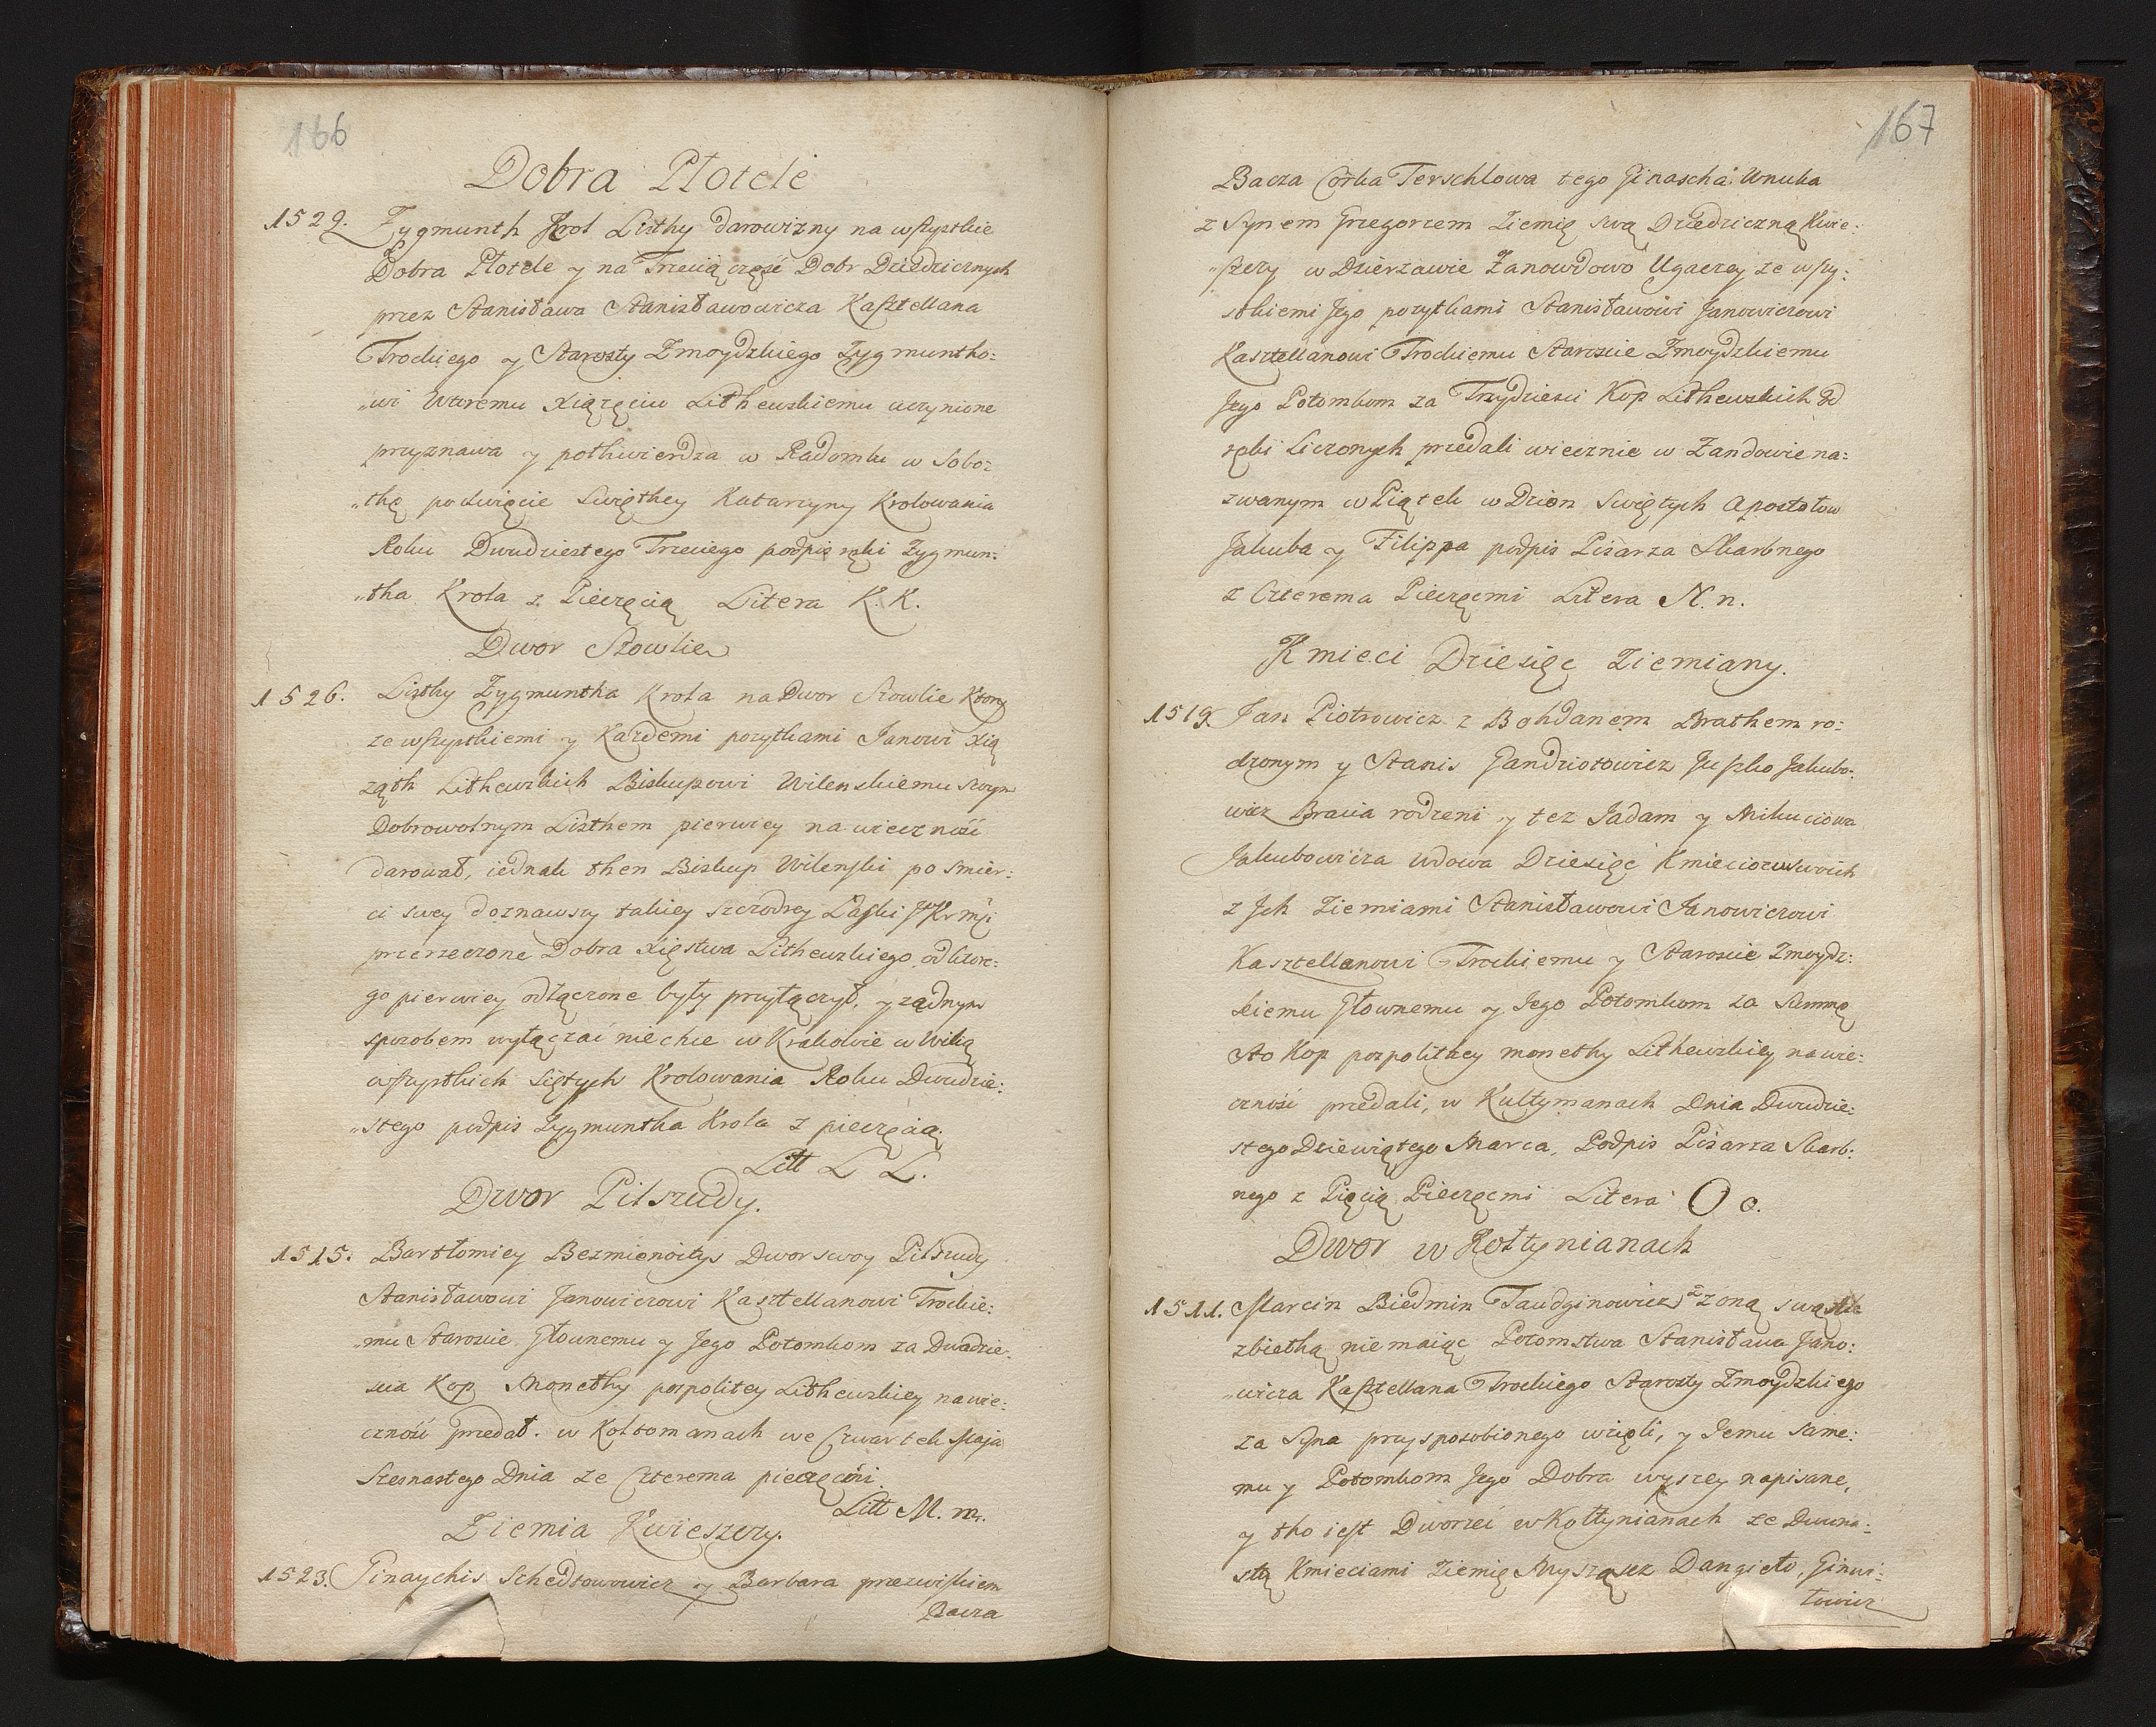 166
Dobra Płotele
1529. Zygmunth Krol Listhy darowizny na wszystkie
Dobra Płotele y na Trzecią część Dobr Dziedzicznych
przez Stanisława Stanisławowicza Kasztellana
Trockiego y Starosty Zmoydzkiego Zygmuntho:
„wi Wtoremu Xiążęciu Lithewskiemu uczynione
przyznawa y pothwierdza w Radomku w Sobo:
„thę po Święcie Swięthey Katarzyny Krolowania
Roku Dwudziestego Trzeciego podpis ręki Zygmun:
„tha Krola z Pieczęcią Litera K. K.
Dwor Szowlie
1526. Listhy Zygmuntha Krola na Dwor Szowlie Ktory
ze wszystkiemi y Kazdemi pozytkami Janowi Xią
ząth Lithewskich Biskupowi Wilenskiemu swym
Dobrowolnym Listhem pierwiey na wieczność
darował, iednak then Biskup Wilenski po smier:
ci swey doznawszy takiey szczodrey Łaski JKrmci
przerzeczone Dobra Xięstwa Lithewskiego od ktore:
go pierwiey odłączone były przyłączył, y ządnym
sposobem wyłączać niechce w Krakowie w Wilią
wszystkich Siętych Krolowania Roku Dwudzie:
„stego podpis Zygmuntha Krola z pieczęcią.
Litt L L.
Dwor Pilszudy.
1515. Bartłomiey Bezmienoitys Dwor swoy Pilszudy
Stanisławowi Janowiczowi Kasztellanowi Trockie:
„mu Staroscie Głownemu y Jego Potomkom za Dwadzie:
scia Kop Monethy pospolitey Lithewskiey na wie:
czność przedał. w Koltomanach we Czwartek Maja
Szesnastego Dnia ze Czterema pieczęćmi
Litt M. m.
Ziemia Kwieszery.
1523. Pinaychis Schedtowowicz y Barbara przezwiskiem
Bacza
167
Bacza Corka Terschlowa tego Ginascha Wnuka
z Synem Grzegorzem Ziemię swą Dziedziczną Kwie:
„szery w Dzierzawie Zanowdowo Ugaczey ze wszy:
stkiemi Jego pozytkami Stanisławowi Janowiczowi
Kasztellanowi Trockiemu Staroscie Zmoydzkiemu
Jego Potomkom za Trzydziesci Kop Lithewskich Od
rąbi Liczonych przedali wiecznie w Zandowie na:
zwanym w Piątek w Dzien Swiętych Apostołow
Jakuba y Filippa podpis Pisarza Skarbnego
z Czterema Pieczęcmi Litera N. n.
Kmieci Dziesięc Ziemiany.
1519. Jan Piotrowicz z Bohdanem Brathem ro:
dzonym y Stanis Gandziołowicz Juszko Jakubo:
wicz Bracia rodzeni y tez Jadam y Mikuciowa
Jakubowicza Wdowa Dziesięć Kmieciow swoich
z Jch Ziemiami Stanisławowi Janowiczowi
Kasztellanowi Trockiemu y Staroscie Zmoydz:
kiemu Głownemu y Jego Potomkom za Summę
Sto Kop pospolithey monethy Lithewskiey na wie:
czność przedali, w Kultymanach Dnia Dwudzie:
stego Dziewiątego Marca, Podpis Pisarza Skarb:
nego z Pięcią Pieczęcmi Litera O o.
Dwor w Kołtynianach
1511. Marcin Biedmin Taudginowicz z zoną swą Elz
zbiethą niemaiąc Potomstwa Stanisława Jano:
„wicza Kasztellana Trockiego Starosty Zmoydzkiego
za Syna przysposobionego wzięli, y Jemu same:
mu y Potomkom Jego Dobra wyszey napisane,
y tho iest Dworzec w Kołtynianach ze Dwuna:
stą Kmieciami Ziemię Myszą sez Dangieło, Ginwi:
towicz